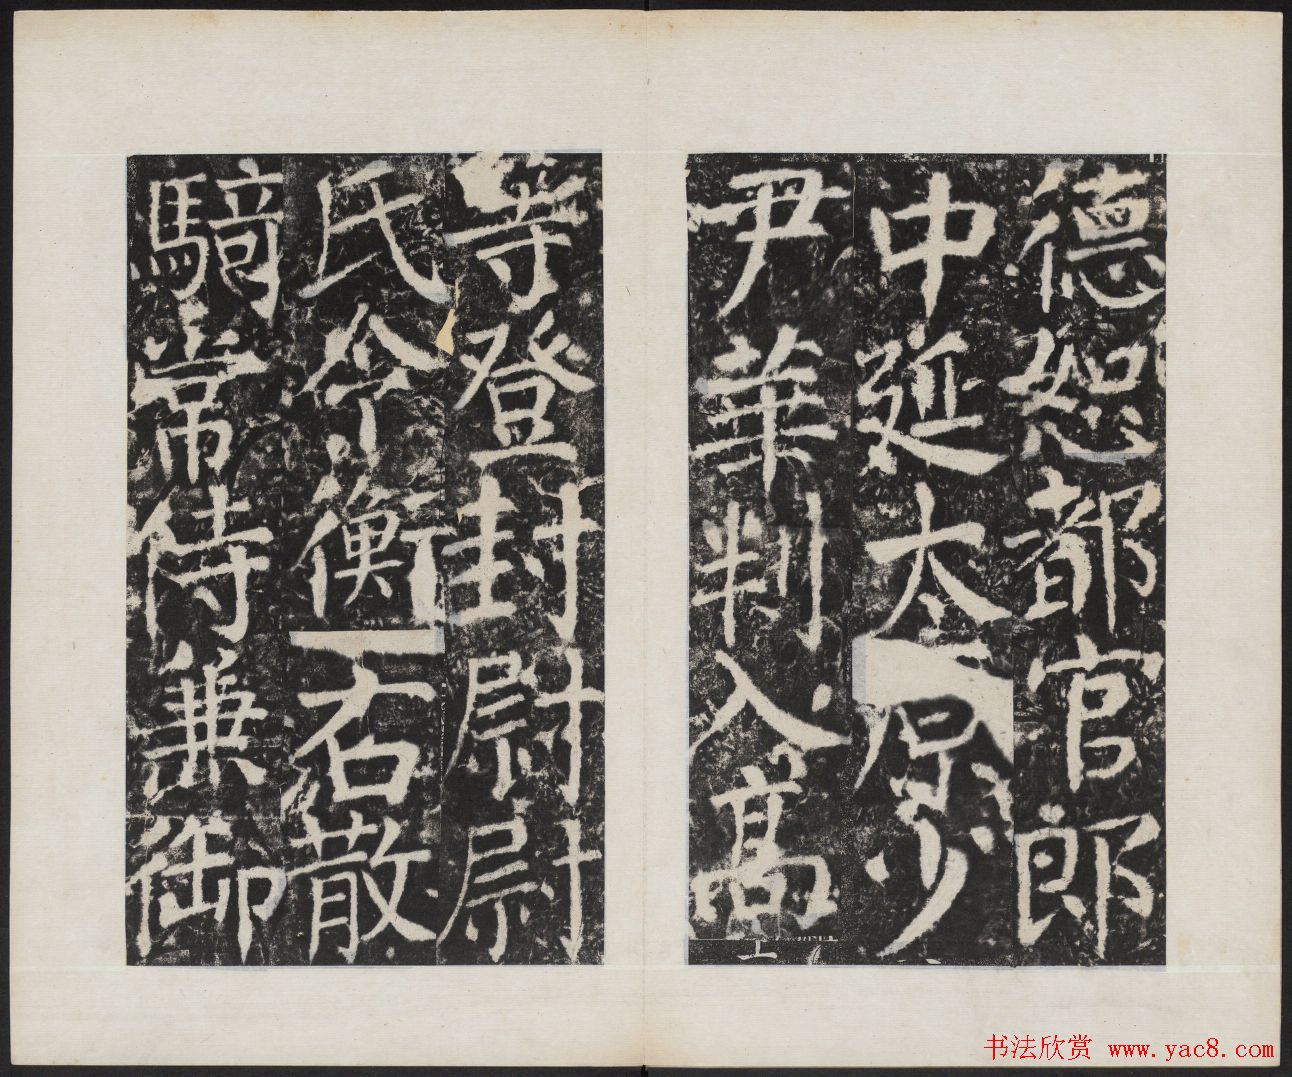 德恕都官郎
中延太原少
尹華判入高
等登封尉尉
氏令衡右散
騎常侍兼御
书法欣赏 www.yac8.com